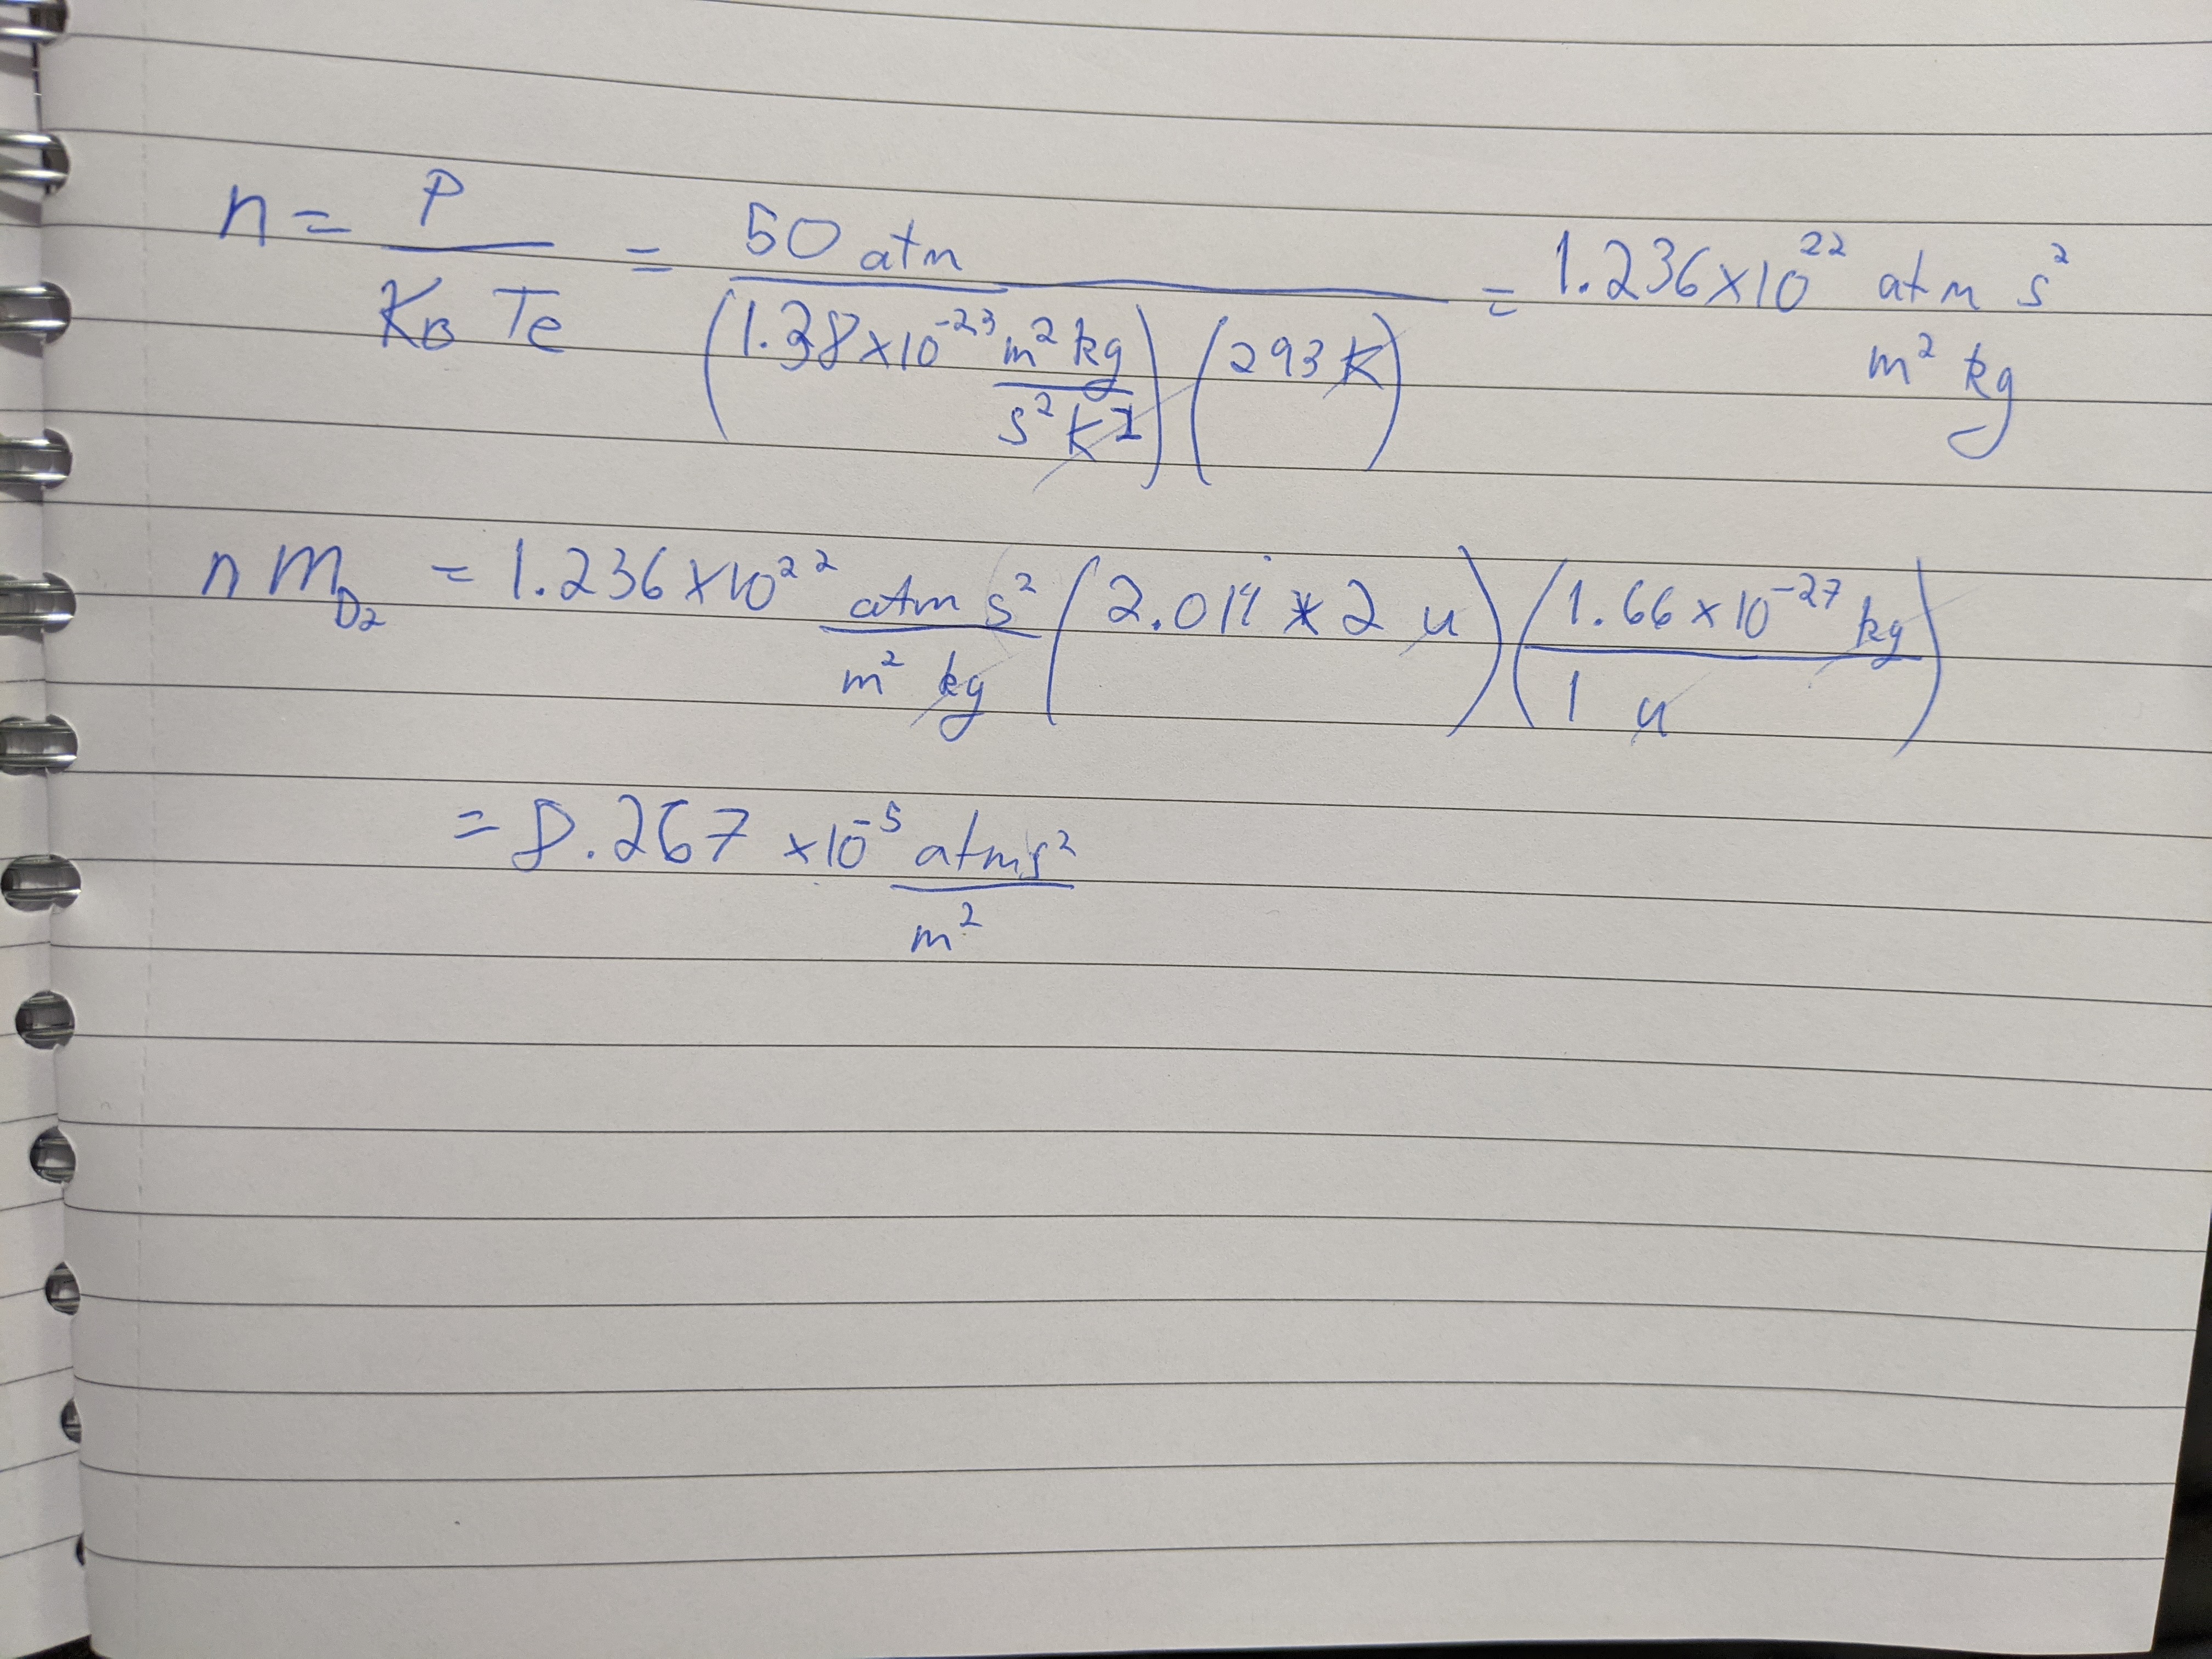 n = P / (K_B Te) = 50 atm / ((1.38×10^-23 m^2 kg / s^2 K1)(293 K)) = 1.236×10^22 atm s^2 / m^2 kg
n m_D2 = 1.236×10^22 atm s^2 / m^2 kg (2.014 * 2 u)(1.66×10^-27 kg / 1 u)
= 8.267 ×10^-5 atm s^2 / m^2